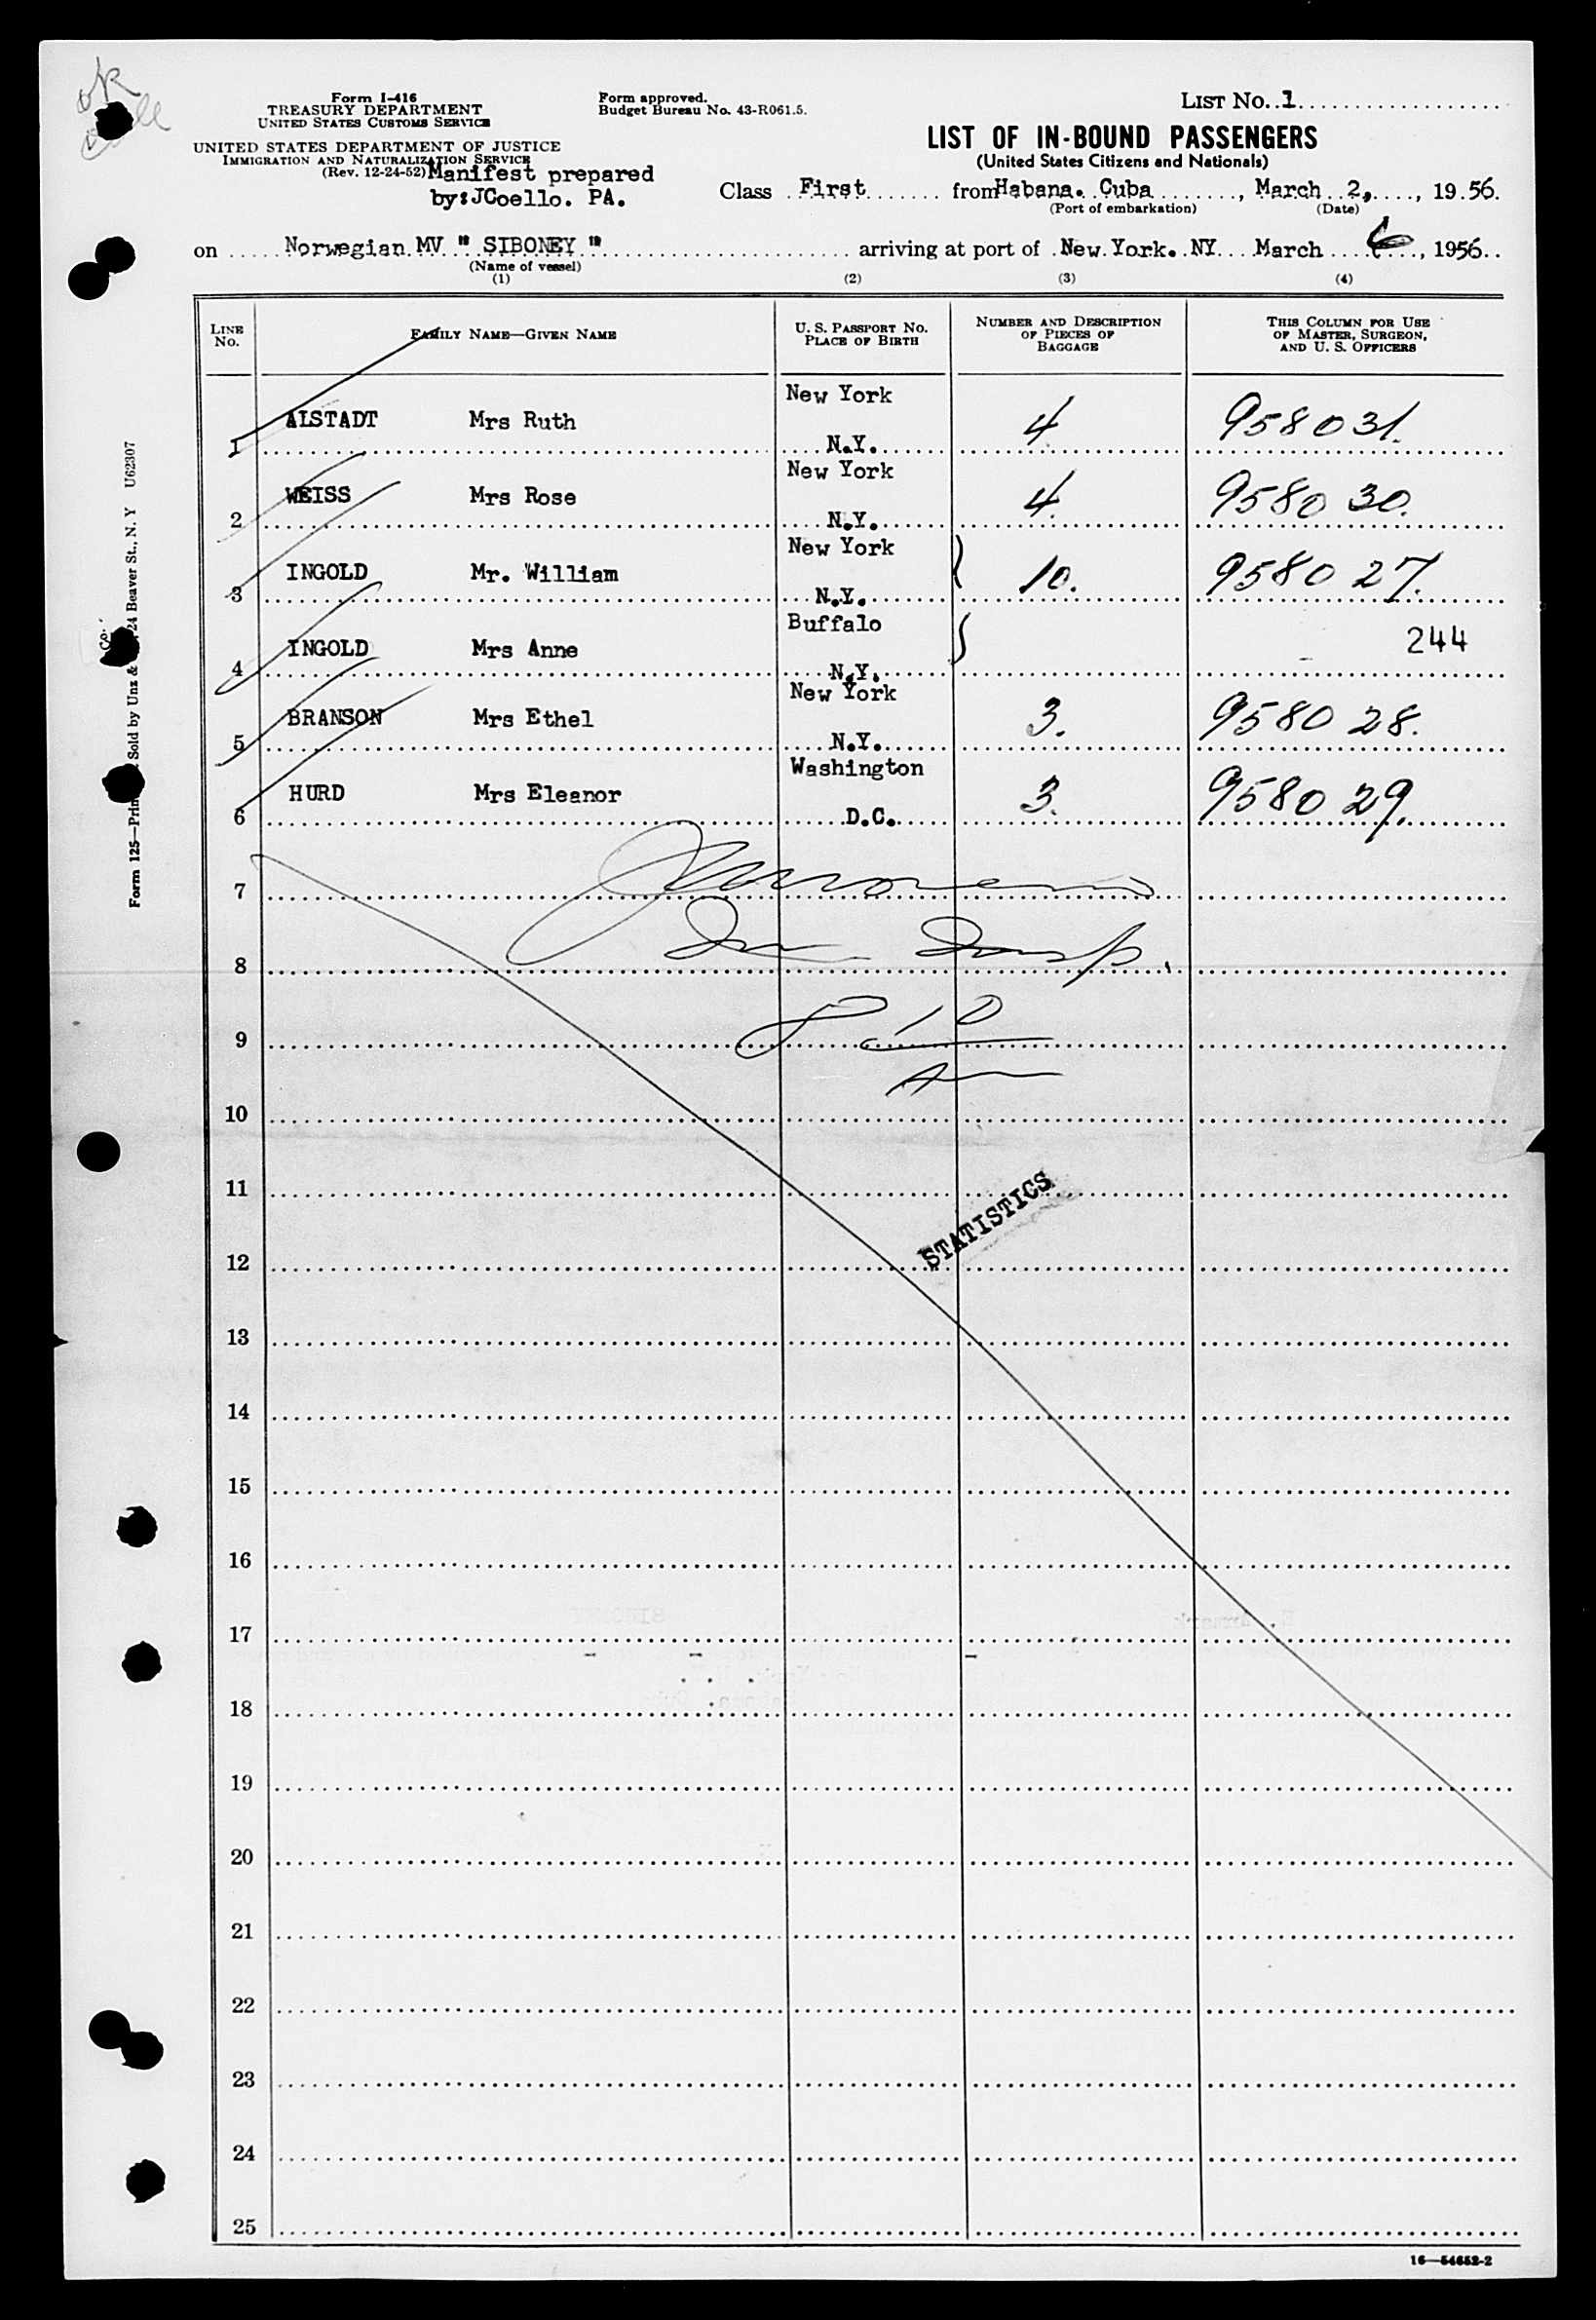 OK
Form I-416
TREASURY DEPARTMENT
UNITED STATES CUSTOMS SERVICE
UNITED STATES DEPARTMENT OF JUSTICE
IMMIGRATION AND NATURALIZATION SERVICE
(Rev. 12-24-52) Manifest prepared
by:JCoello. PA.
Form approved.
Budget Bureau No. 43-R061.5.
LIST No. 1
LIST OF IN-BOUND PASSENGERS
(United States Citizens and Nationals)
Class First from Habana. Cuba, March 2, 1956.
(Port of embarkation) (Date)
on Norwegian MV " SIBONEY " arriving at port of New York. NY March 6, 1956.
(Name of vessel)
(1) (2) (3) (4)
LINE No. FAMILY NAME—GIVEN NAME U. S. PASSPORT NO. PLACE OF BIRTH NUMBER AND DESCRIPTION OF PIECES OF BAGGAGE THIS COLUMN FOR USE OF MASTER, SURGEON, AND U. S. OFFICERS
1 ALSTADT Mrs Ruth New York N.Y. 4. 958031.
2 WEISS Mrs Rose New York N.Y. 4. 958030.
3 INGOLD Mr. William New York N.Y. 10. 958027.
4 INGOLD Mrs Anne Buffalo N.Y. 244
5 BRANSON Mrs Ethel New York N.Y. 3. 958028.
6 HURD Mrs Eleanor Washington D.C. 3. 958029.
7
8 Insp.
9
10
11
STATISTICS
12
13
14
15
16
17
18
19
20
21
22
23
24
25
16—54652-2
Form 125—Prin Sold by Unz & 24 Beaver St., N. Y U62307